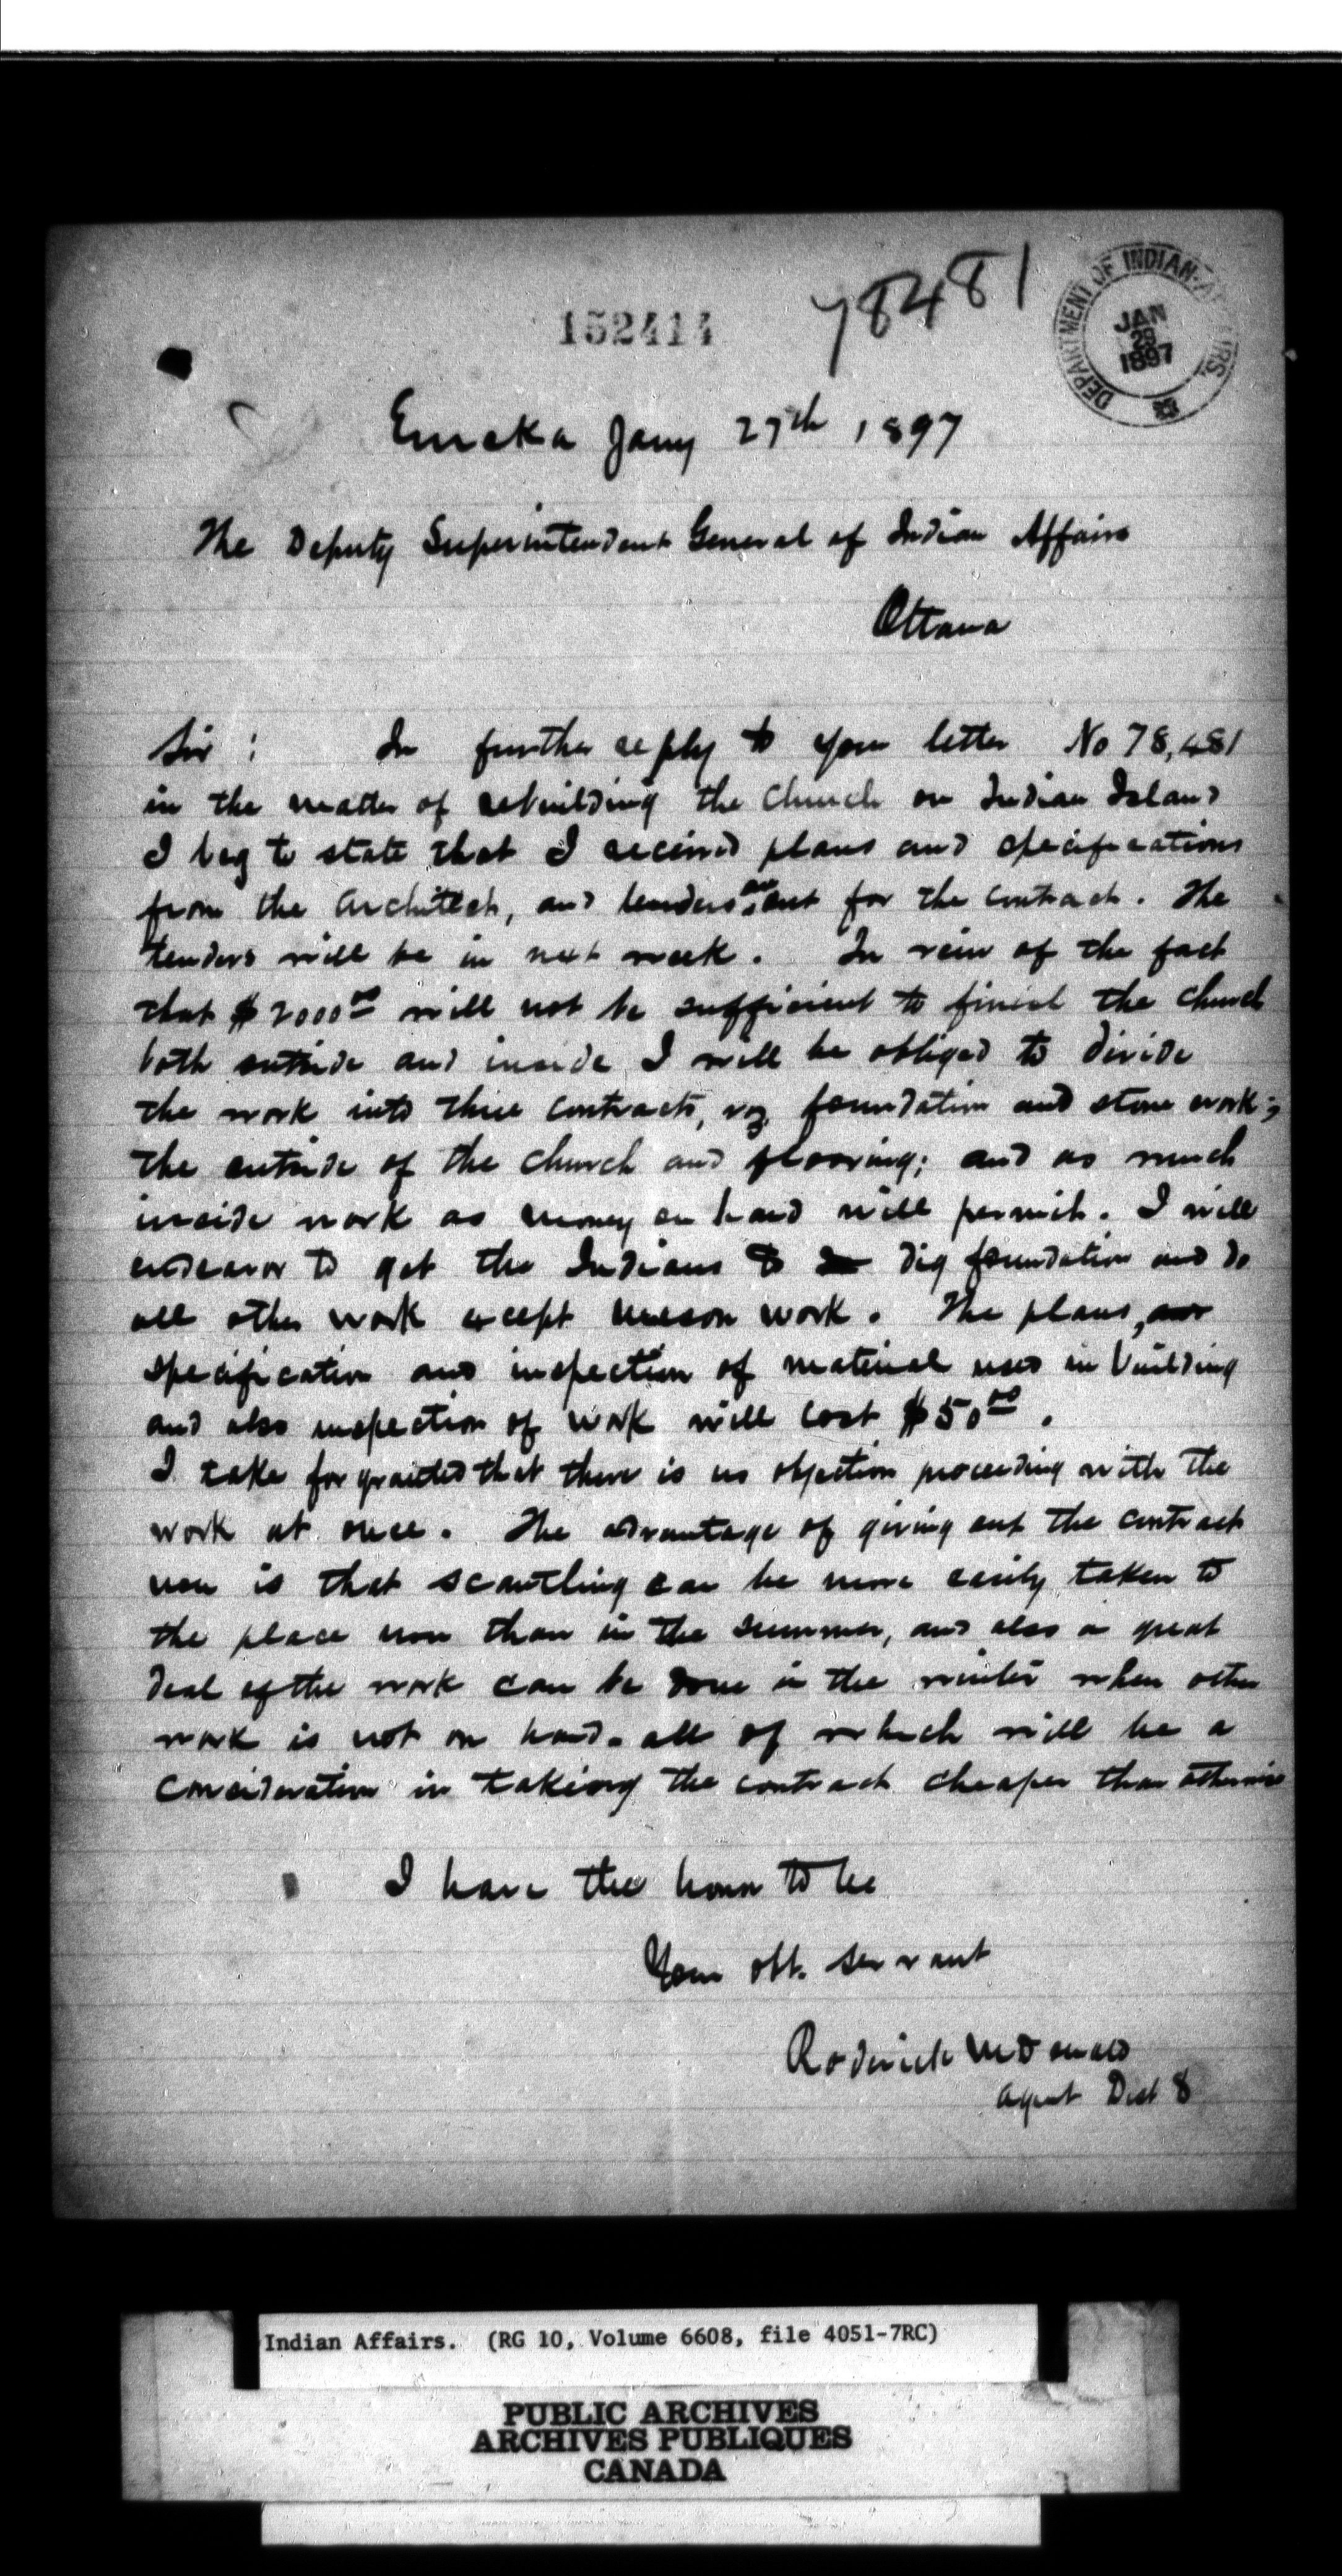 152414
78481
DEPARTMENT OF INDIAN AFFAIRS.
JAN
29
1897
Eureka Jany 27th 1897
The Deputy Superintendent General of Indian Affairs
Ottawa
Sir : In further reply to your letter No 78,481
in the matter of rebuilding the Church on Indian Island
I beg to state that I received plans and specifications
from the Architect, and tenders are out for the contract. The
tenders will be in next week. In view of the fact
that $2000 00 will not be sufficient to finish the church
both outside and inside I will be obliged to divide
the work into three contracts, viz, foundation and stone work;
the outside of the church and flooring; and as much
inside work as money on hand will permit. I will
endeavor to get the Indians to dig foundation and do
all other work except mason work. The plans,
specification and inspection of material used in building
and also inspection of work will cost $50 00.
I take for granted that there is no objection proceeding with the
work at once. The advantage of giving out the contract
now is that scantling can be more easily taken to
the place now than in the summer, and also a great
deal of the work can be done in the winter when other
work is not on hand. all of which will be a
consideration in taking the contract cheaper than otherwise
I have the honor to be
Your obt. servant
Roderick McDonald
Agent Dist 8
Indian Affairs. (RG 10, Volume 6608, file 4051-7RC)
PUBLIC ARCHIVES
ARCHIVES PUBLIQUES
CANADA